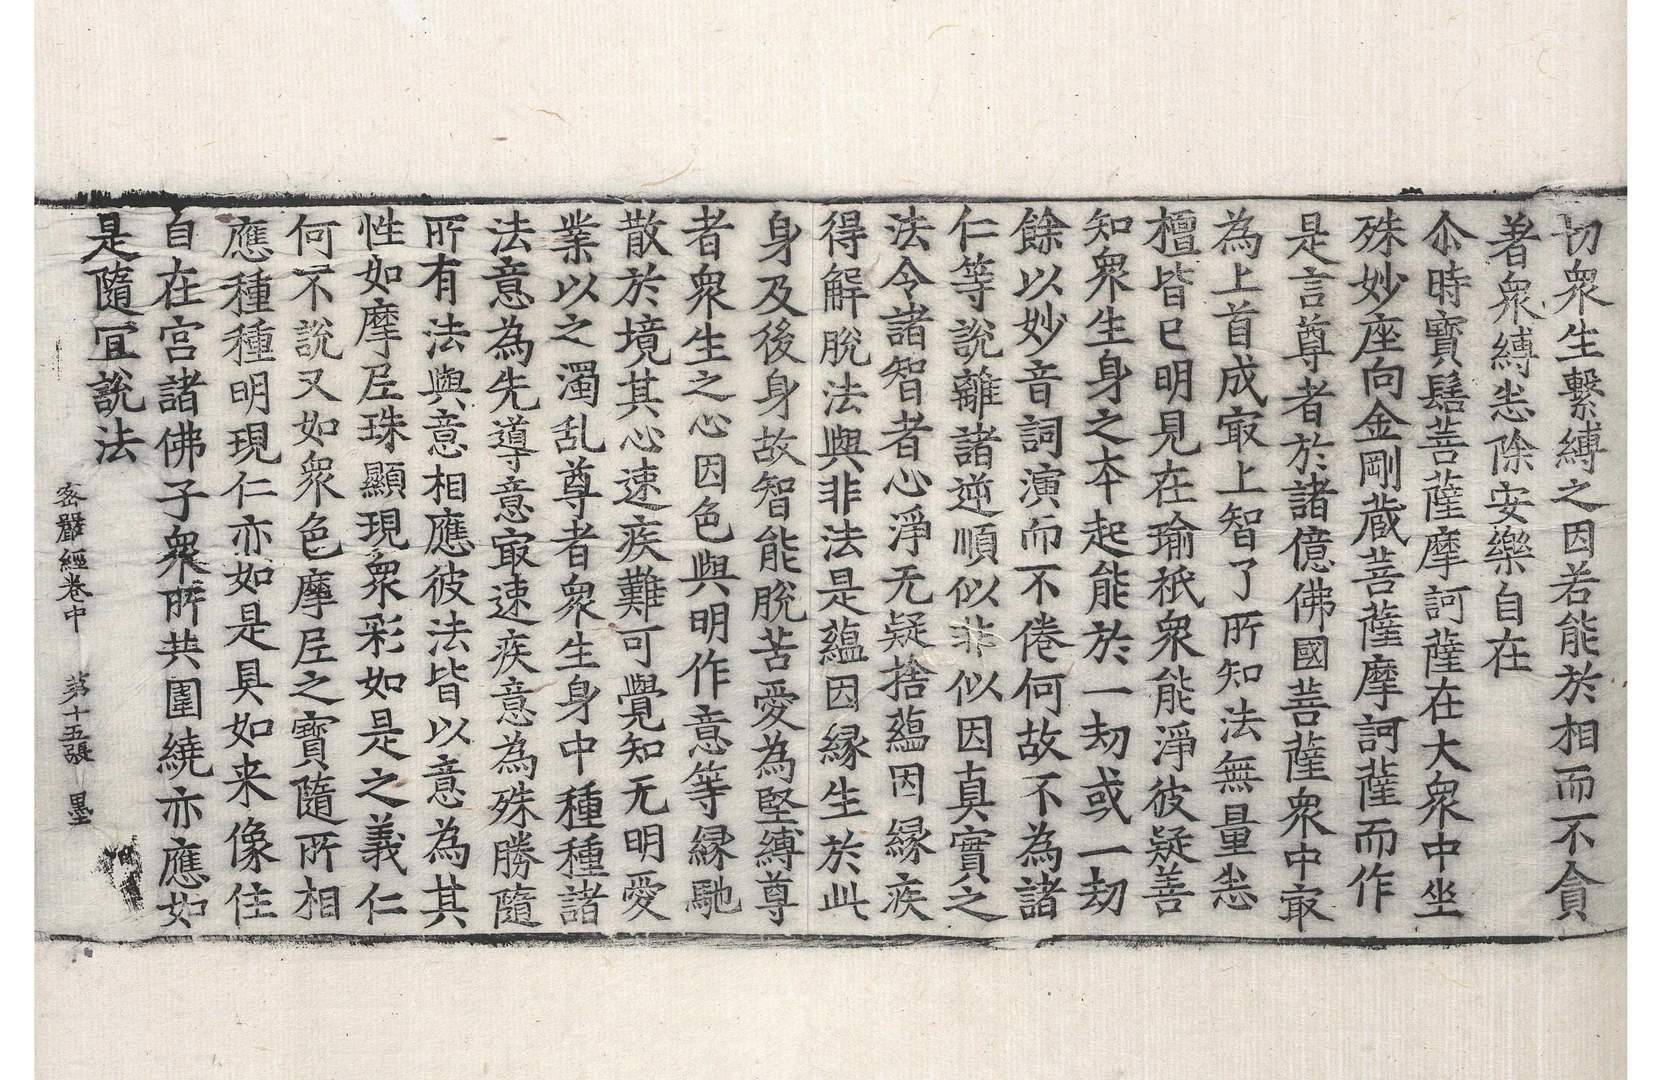 切衆生繫縛之因若能於相而不貪
著衆縛悉除安樂自在
尒時寶髻菩薩摩訶薩在大衆中坐
殊妙座向金剛蔵菩薩摩訶薩而作
是言尊者於諸億佛國菩薩衆中㝡
為上首成㝡上智了所知法無量悉
檀皆已明見在瑜祇衆能淨彼疑善
知衆生身之本起能於一劫或一劫
餘以妙音詞演而不倦何故不為諸
仁等說離諸逆順似非似因真實之
法令諸智者心淨无疑捨蘊因緣疾
得解脫法與非法是蘊因緣生於此
身及後身故智能脫苦愛為堅縛尊
者衆生之心因色與明作意等緣馳
散於境其心速疾難可覺知无明愛
業以之濁乱尊者衆生身中種種諸
法意為先導意㝡速疾意為殊勝隨
所有法與意相應彼法皆以意為其
性如摩尼珠顯現衆彩如是之義仁
何不說又如衆色摩尼之寶隨所相
應種種明現仁亦如是具如来像住
自在宮諸佛子衆所共圍繞亦應如
是隨宜說法
密嚴經卷中 第十五張 墨